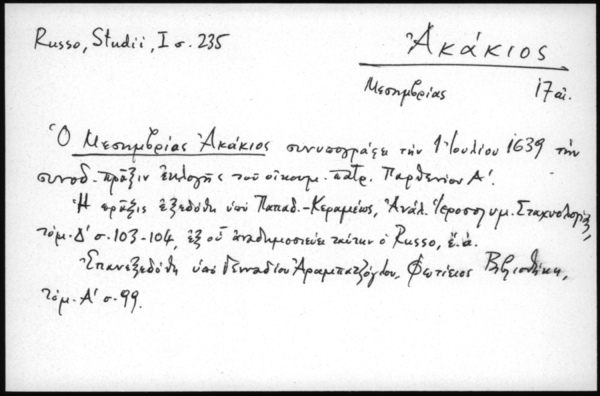 Russo, Studii, I σ. 235
Ἀκάκιος
Μεσημβρίας 17 αἰ.
Ὁ Μεσημβρίας Ἀκάκιος συνυπογράφει τὴν 1 Ἰουλίου 1639 τὴν
συνοδ. πρᾶξιν ἐκλογῆς τοῦ οἰκουμ. πατρ. Παρθενίου Α΄.
Ἡ πρᾶξις ἐξεδόθη ὑπὸ Παπαδ.-Κεραμέως, Ἀνάλ. Ἱεροσολυμ. Σταχυολογίας,
τόμ. Δ΄ σ. 103-104, ἐξ οὗ ἀναδημοσιεύει ταύτην ὁ Russo, ἔ.ἀ.
Ἐπανεξεδόθη ὑπὸ Γενναδίου Ἀραμπατζόγλου, Φωτίειος Βιβλιοθήκη,
τόμ. Α΄ σ. 99.